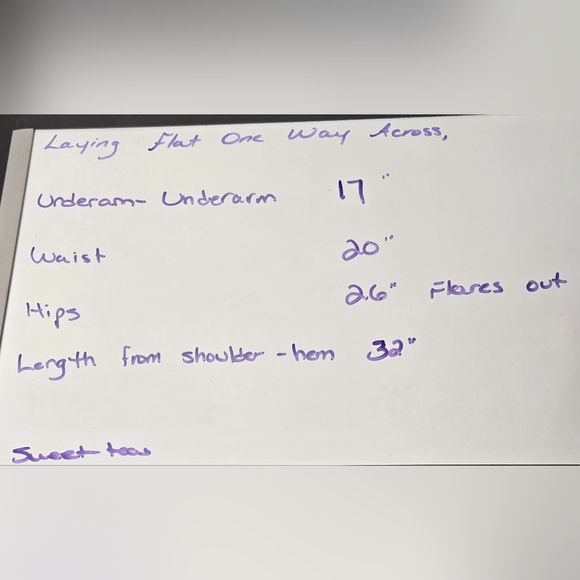 Laying Flat One Way Across,
Underam- Underarm 17"
Waist 20"
Hips 26" Flares out
Length from shoulder - hem 32"
Sweet teas